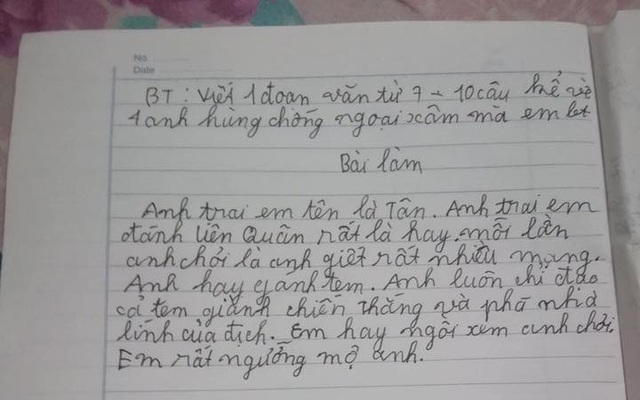 No
Date
BT: Viết 1 đoạn văn từ 7 - 10 câu kể về
1 anh hùng chống ngoại xâm mà em biết
Bài làm
Anh trai em tên là Tân. Anh trai em
đánh liên Quân rất là hay. mỗi lần
anh chơi là anh giết rất nhiều mạng.
Anh hay gánh tem. Anh luôn chỉ đạo
cả tem giành chiến thắng và phá nhà
lính của địch. Em hay ngồi xem anh chơi.
Em rất ngưỡng mộ anh.